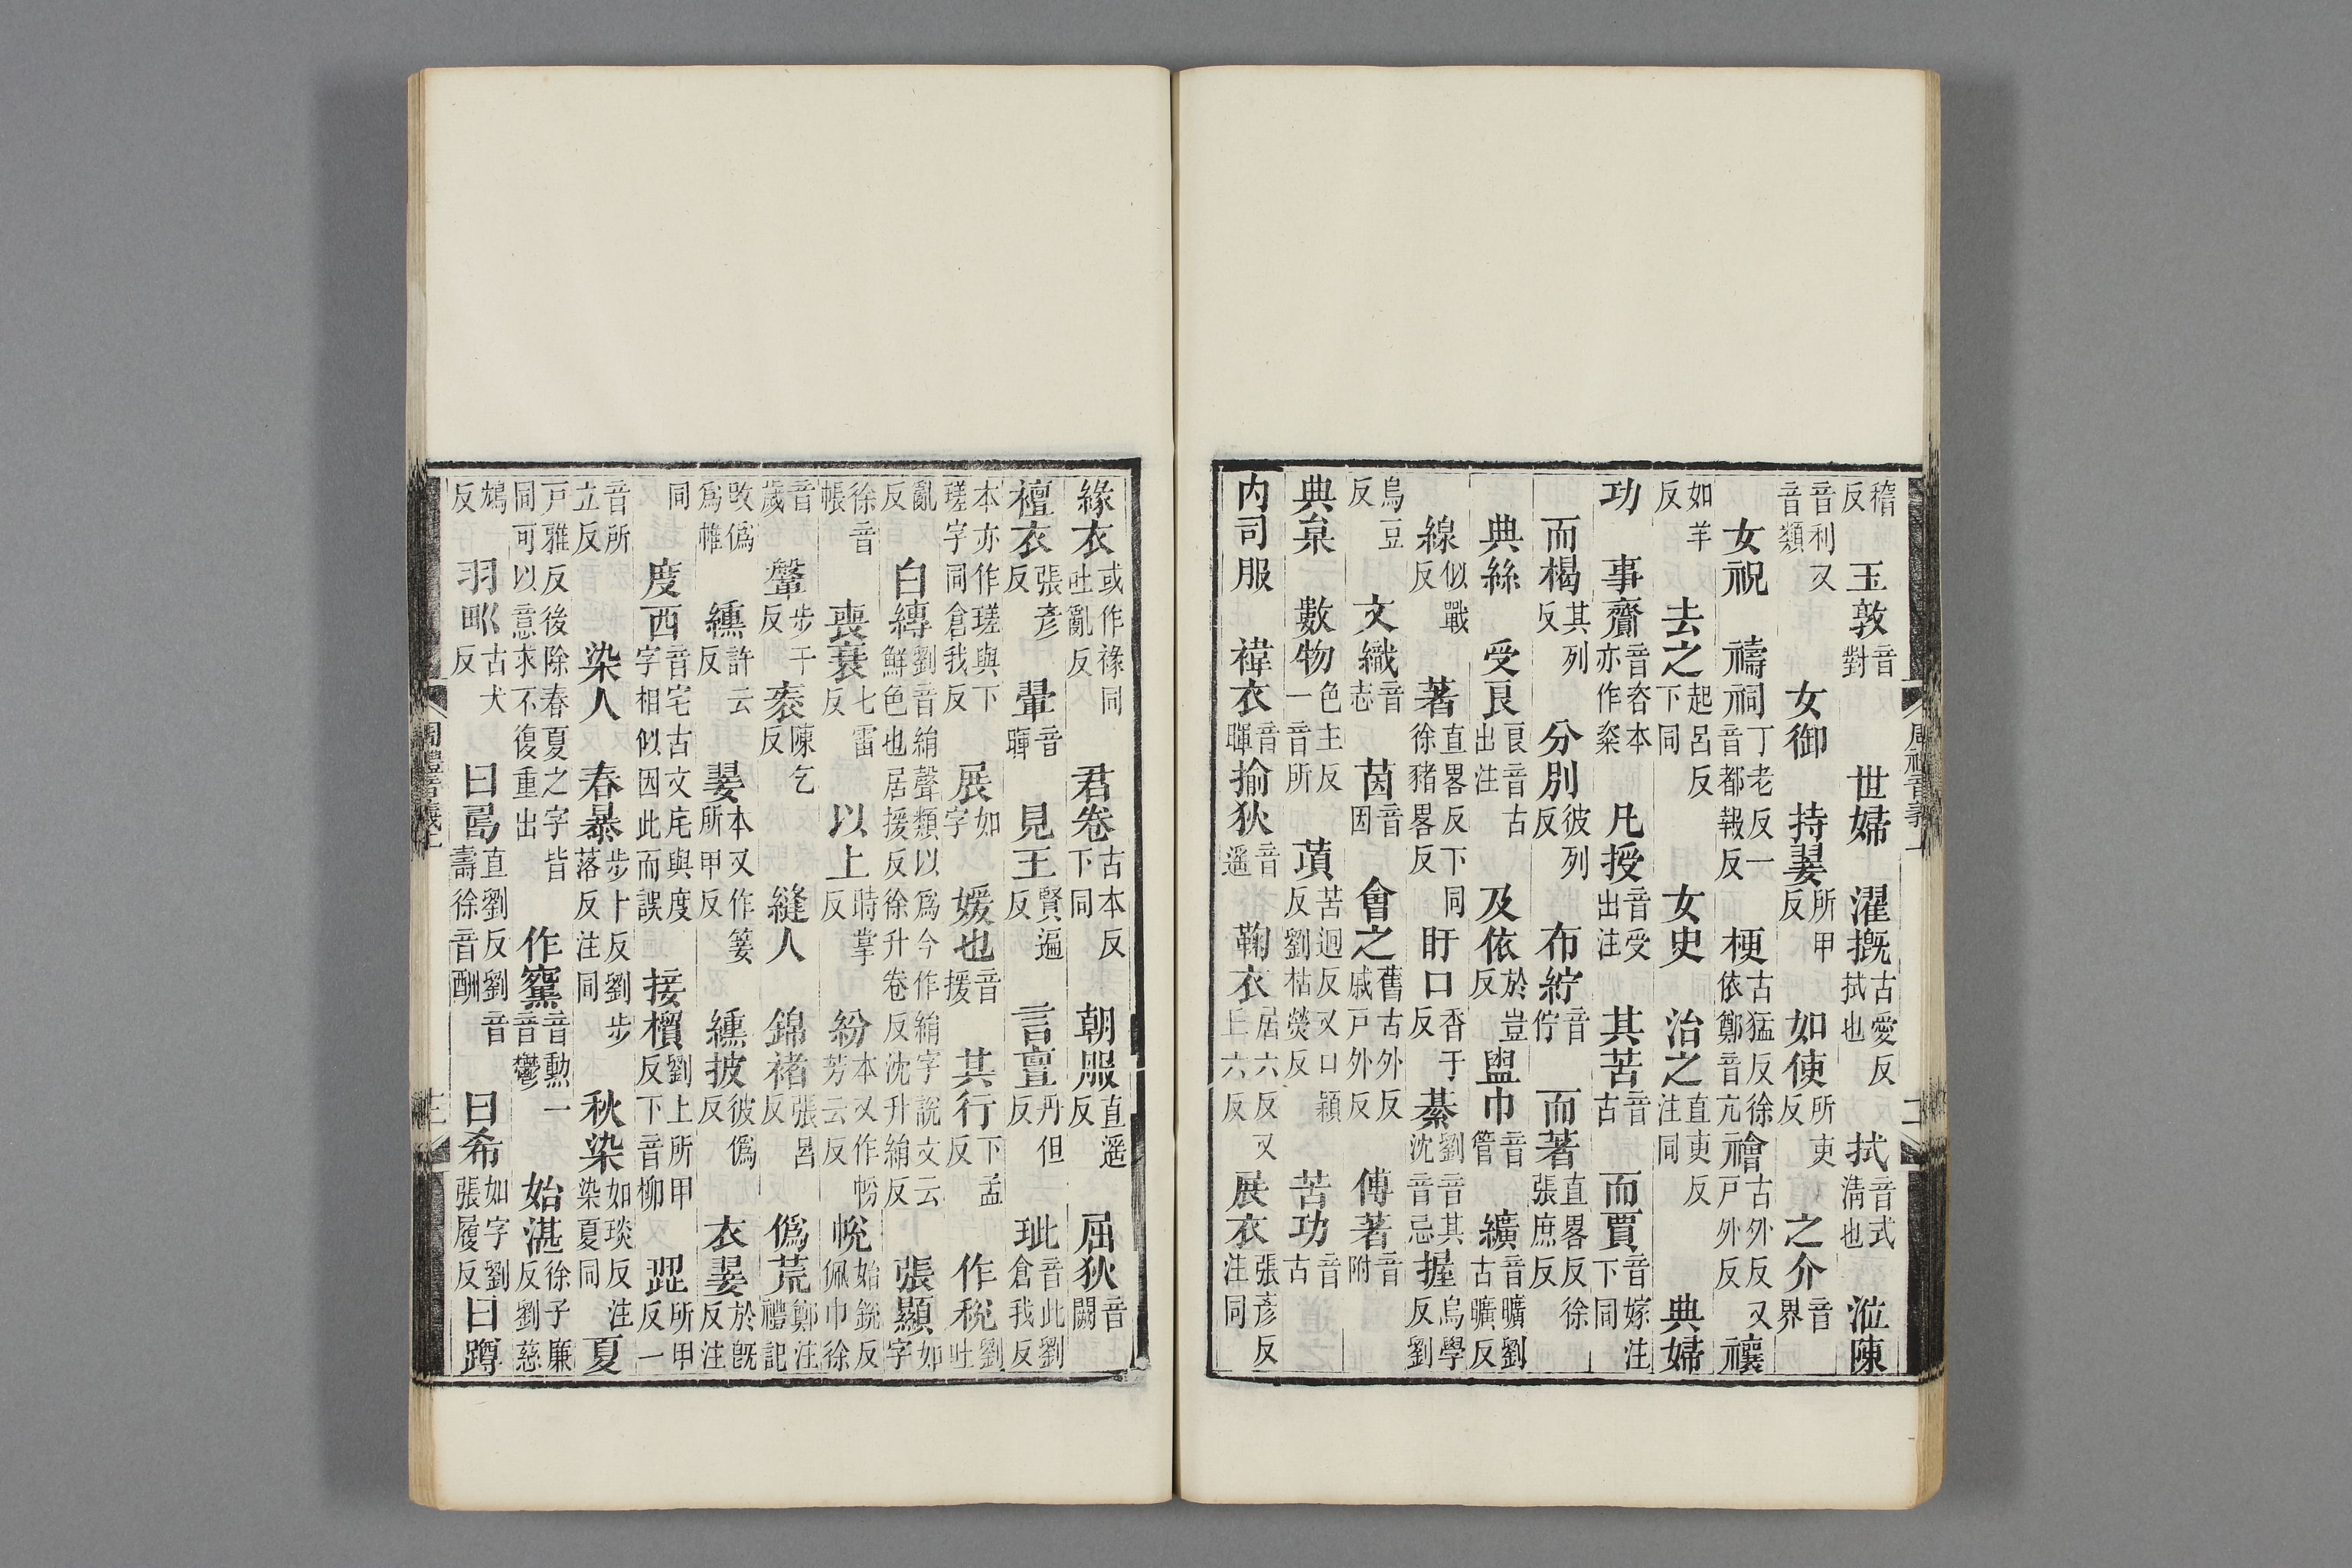 稽反 玉敦音對 世婦 濯摡古愛反拭也 拭音式清也 涖陳
音利又音類 女御 持翣所甲反 如使所吏反 之介音界
女祝 禱祠丁老反一音都報反 梗古猛反徐依鄭音亢 禬古外反又戸外反 禳
如羊反 去之起呂反下同 女史 治之直吏反注同 典婦
功 事齎音咨本亦作粢 凡授音受出注 其苦音古 而賈音嫁注下同
而楬其列反 分別彼列反 布紵音佇 而著直畧反徐張庶反
典絲 受良音古出注 及依於豈反 盥巾音管 纊音曠劉古曠反
線似戰反 著直畧反下同徐豬畧反 盱口香于反 綦劉音其沈音忌 握烏學反劉
烏豆反 文織音志 茵音因 會之舊古外反戚戸外反 傅著音附
典枲 數物色主反一音所 䔛苦迥反又口穎反劉枯熒反 苦功音古
内司服 褘衣音暉 揄狄音遥 鞠衣居六反又丘六反 展衣張彥反注同
緣衣或作褖同吐亂反 君卷古本反下同 朝服直遥反 屈狄音闕
襢衣張彥反 翬音暉 見王賢遍反 言亶丹但反 玼音此劉倉我反
本亦作瑳與下瑳字同倉我反 展如字 媛也音援 其行下孟反 作税劉吐
亂反 白縳劉音絹聲類以爲今作絹字說文云鮮色也居援反徐升卷反沈升絹反 張顯如字
徐音帳 喪衰七雷反 以上時掌反 紛本又作帉芳云反 帨始銳反佩巾徐
音歲 鞶步干反 袠陳乞反 縫人 錦褚張呂反 僞荒鄭注禮記
改僞爲帷 纁許云反 翣本又作䈉所甲反 纁披彼僞反 衣翣於旣反注
同 度西音宅古文㡯與度字相似因此而誤 接檟劉上所甲反下音柳 歰所甲反一
音所立反 染人 春暴步卜反劉步落反注同 秋染如琰反注染夏同 夏
戸雅反後除春夏之字皆同可以意求不復重出 作䵫音勲一音鬱 始湛徐子廉反劉慈
鴆反 羽畎古犬反 曰𠷎直劉反劉音壽徐音酬 曰希如字劉張履反 曰蹲
周禮音義上
周禮音義上